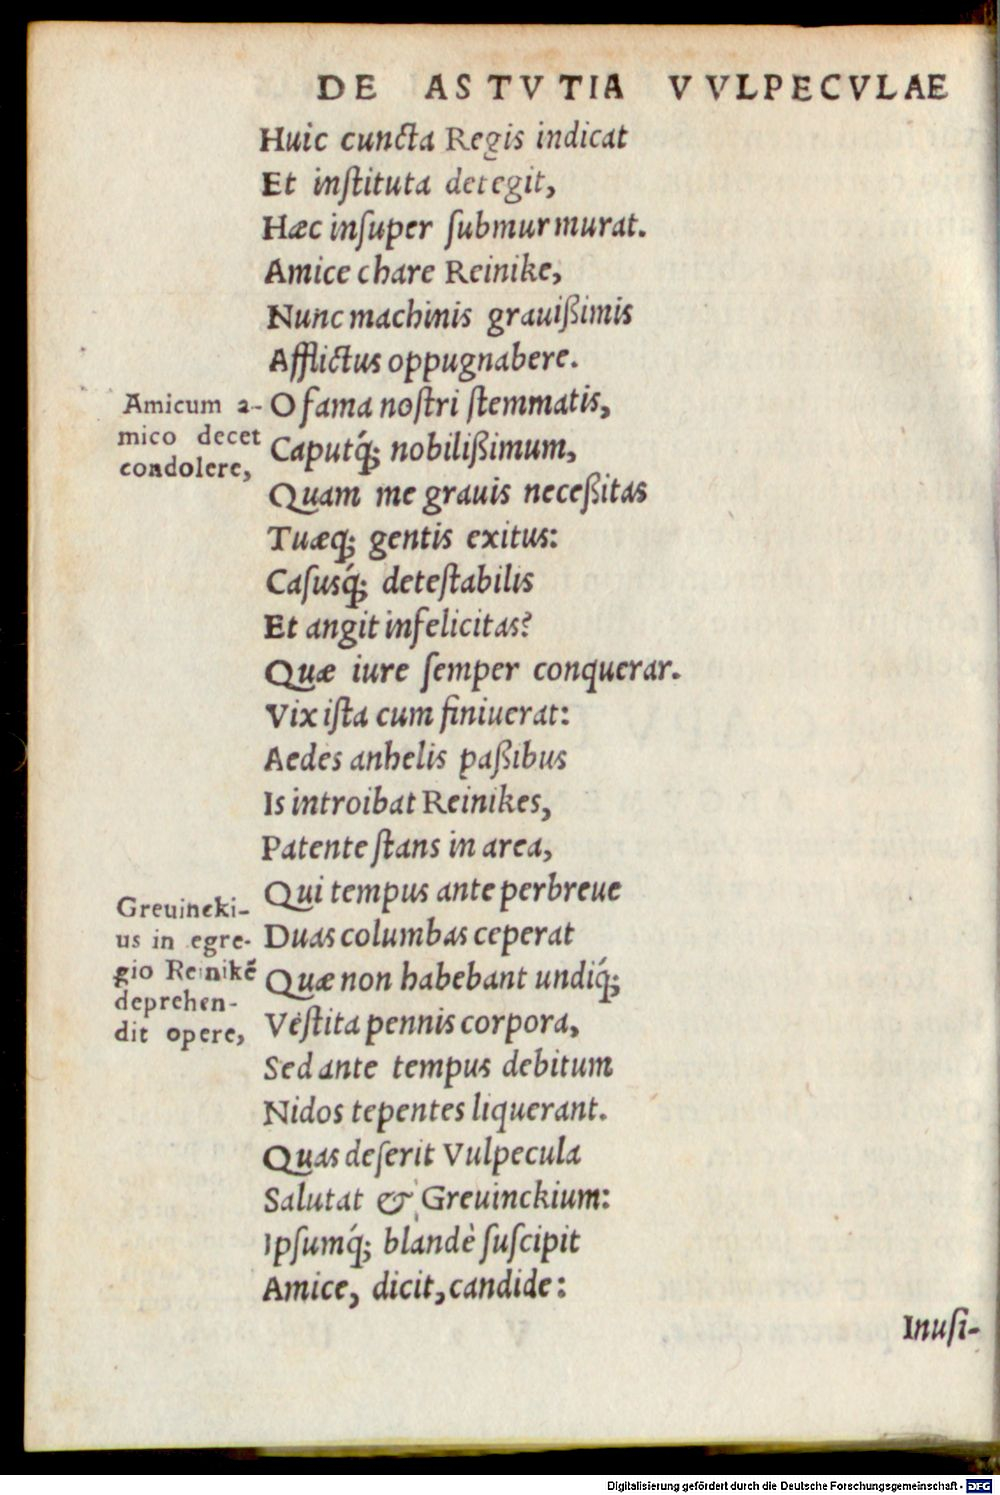 DE ASTVTIA VVLPECVLAE
Huic cuncta Regis indicat
Et inſtituta detegit,
Hæc inſuper ſubmurmurat.
Amice chare Reinike,
Nunc machinis grauißimis
Afflictus oppugnabere.
Amicum a-
mico decet
condolere,
O fama noſtri ſtemmatis,
Caputq́; nobilißimum,
Quam me grauis neceßitas
Tuæq; gentis exitus:
Caſusq́; deteſtabilis
Et angit infelicitas?
Quæ iure ſemper conquerar.
Vix iſta cum finiuerat:
Aedes anhelis paßibus
Is introibat Reinikes,
Patente ſtans in area,
Qui tempus ante perbreue
Greuincki-
us in egre-
gio Reinikẽ
deprehen-
dit opere,
Duas columbas ceperat
Quæ non habebant undiq́;
Veſtita pennis corpora,
Sed ante tempus debitum
Nidos tepentes liquerant.
Quas deſerit Vulpecula
Salutat & Greuinckium:
Ipſumq́; blandè ſuſcipit
Amice, dicit, candide:
Inuſi-
Digitalisierung gefördert durch die Deutsche Forschungsgemeinschaft - DFG